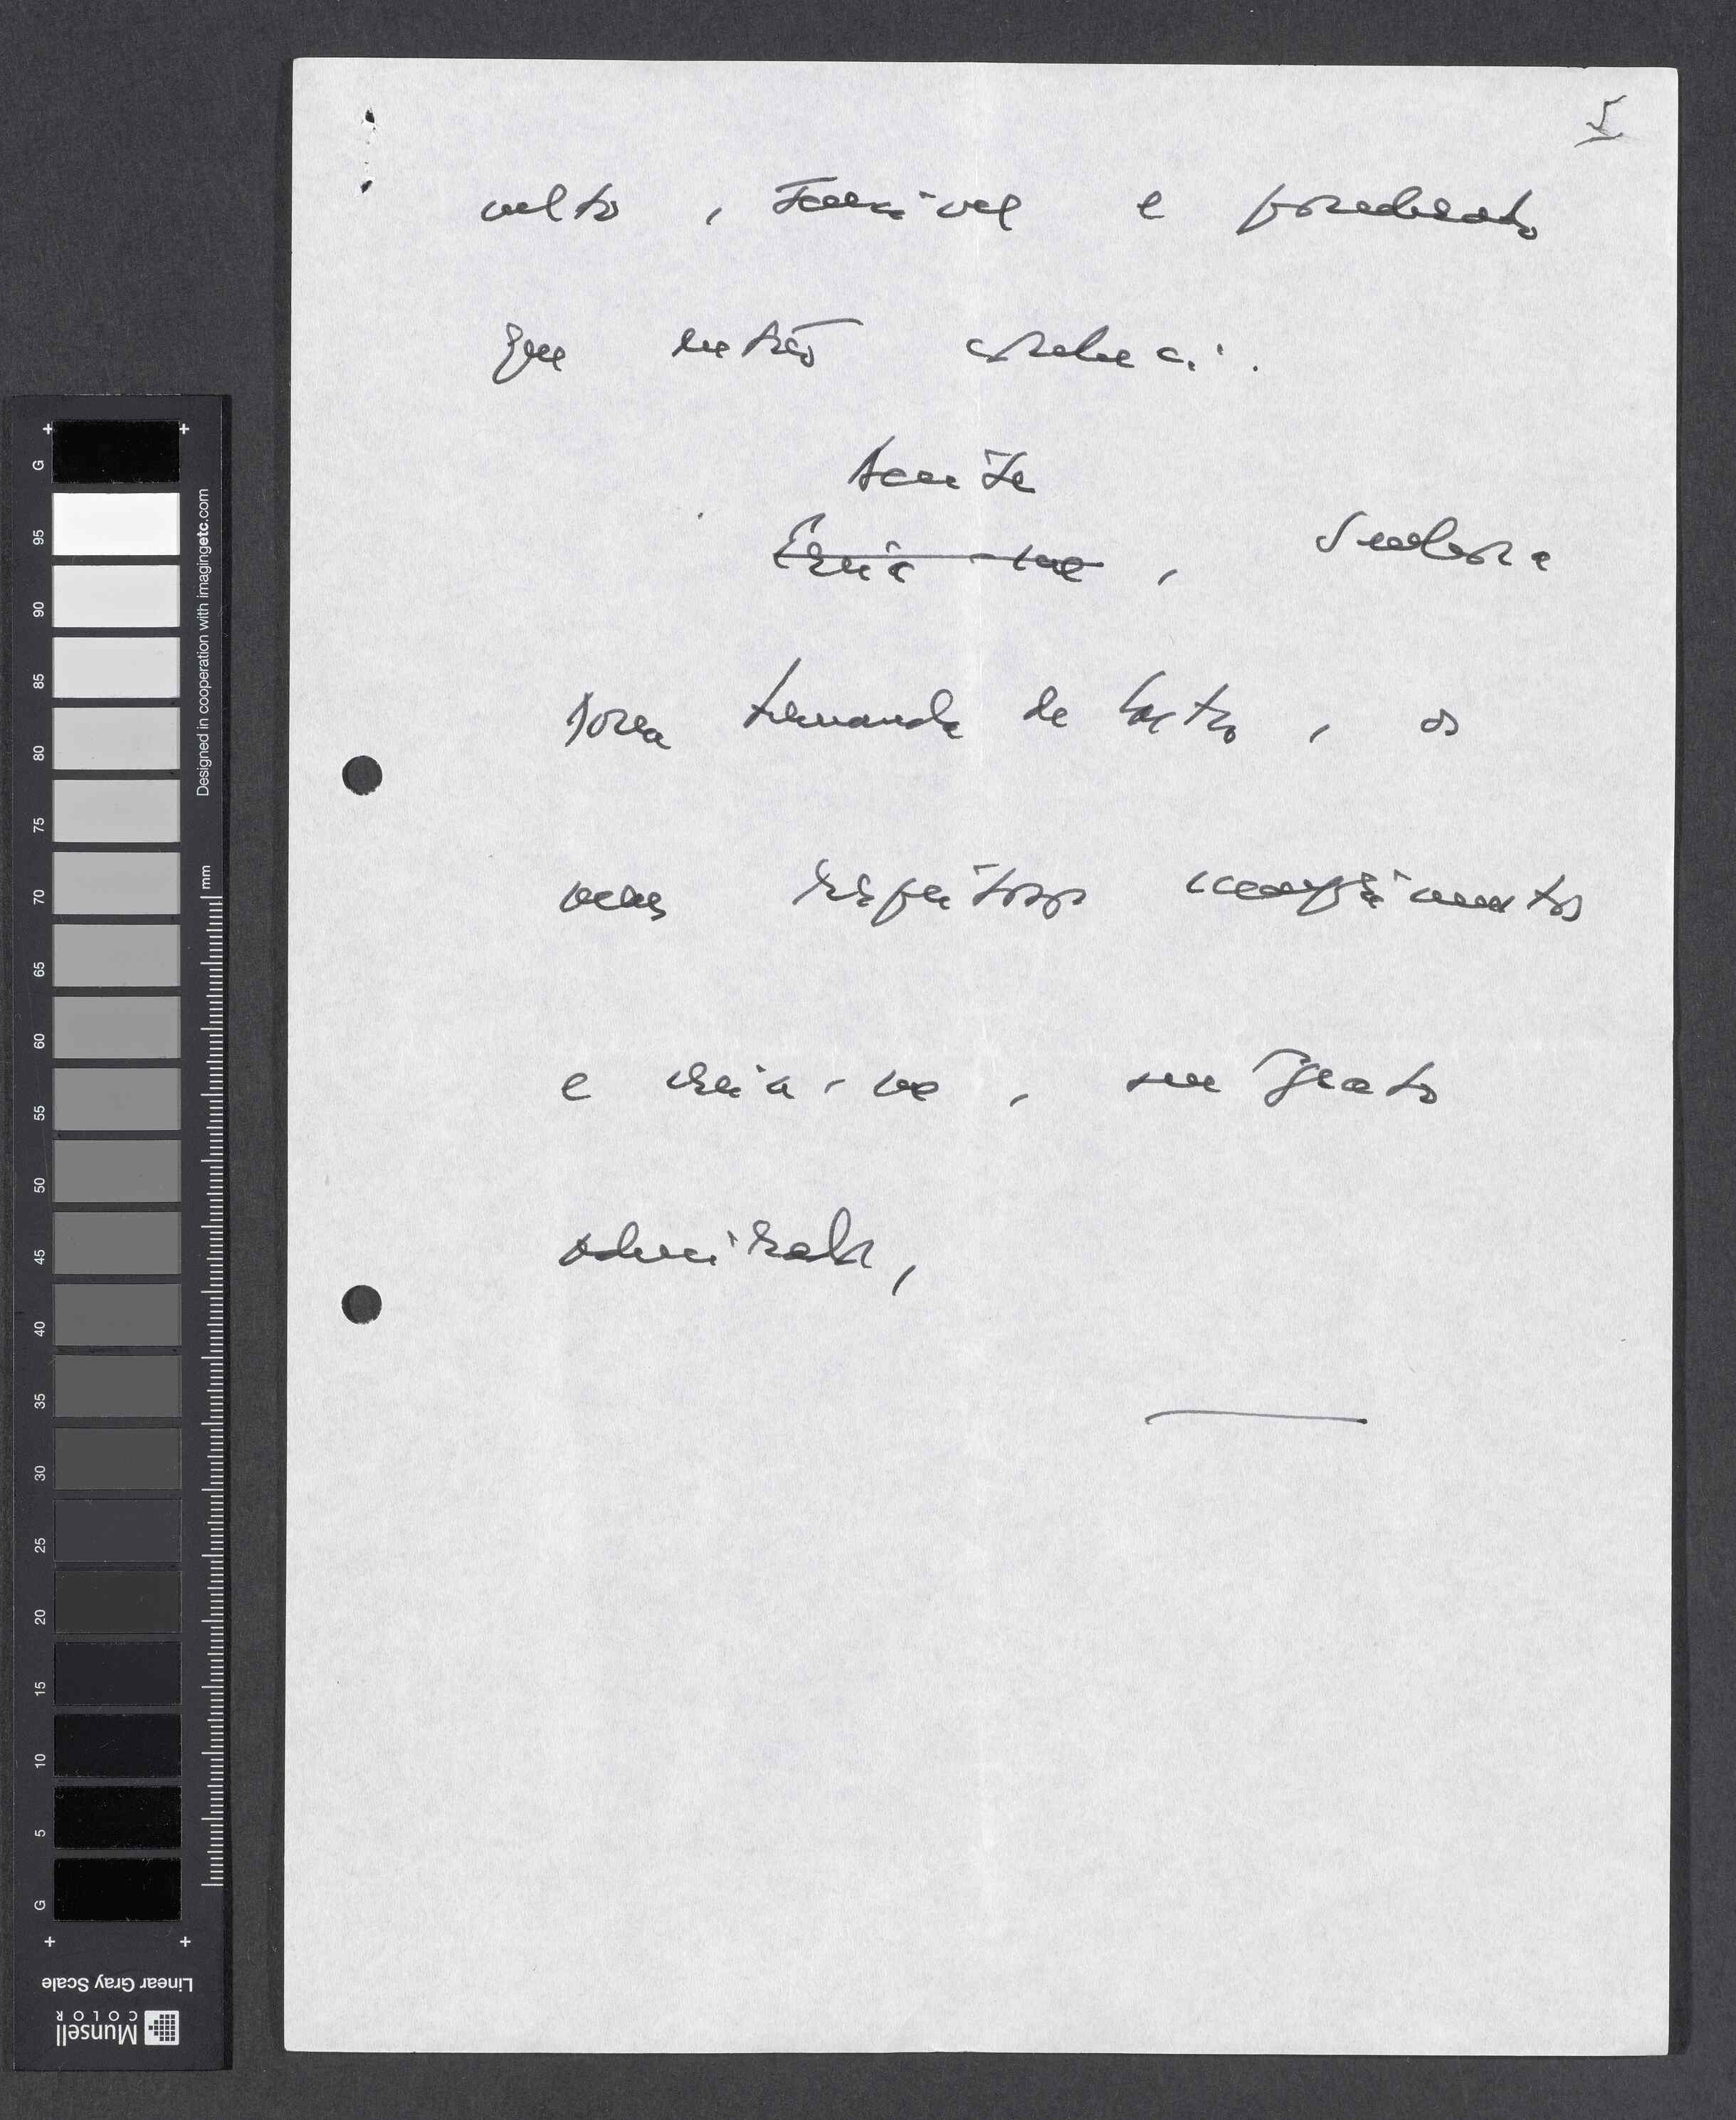 5
culto, sensível e ponderado
que então conheci.
Aceite
Creia-me, Senhora
Dona Fernanda de Castro, os
meus respeitosos cumprimentos
e creia-me, seu grato
admirador,
G
95
90
85
80
75
70
65
60
55
50
45
40
35
30
25
20
15
10
5
G
Designed in cooperation with imagingetc.com
mm
Linear Gray Scale
Munsell
COLOR